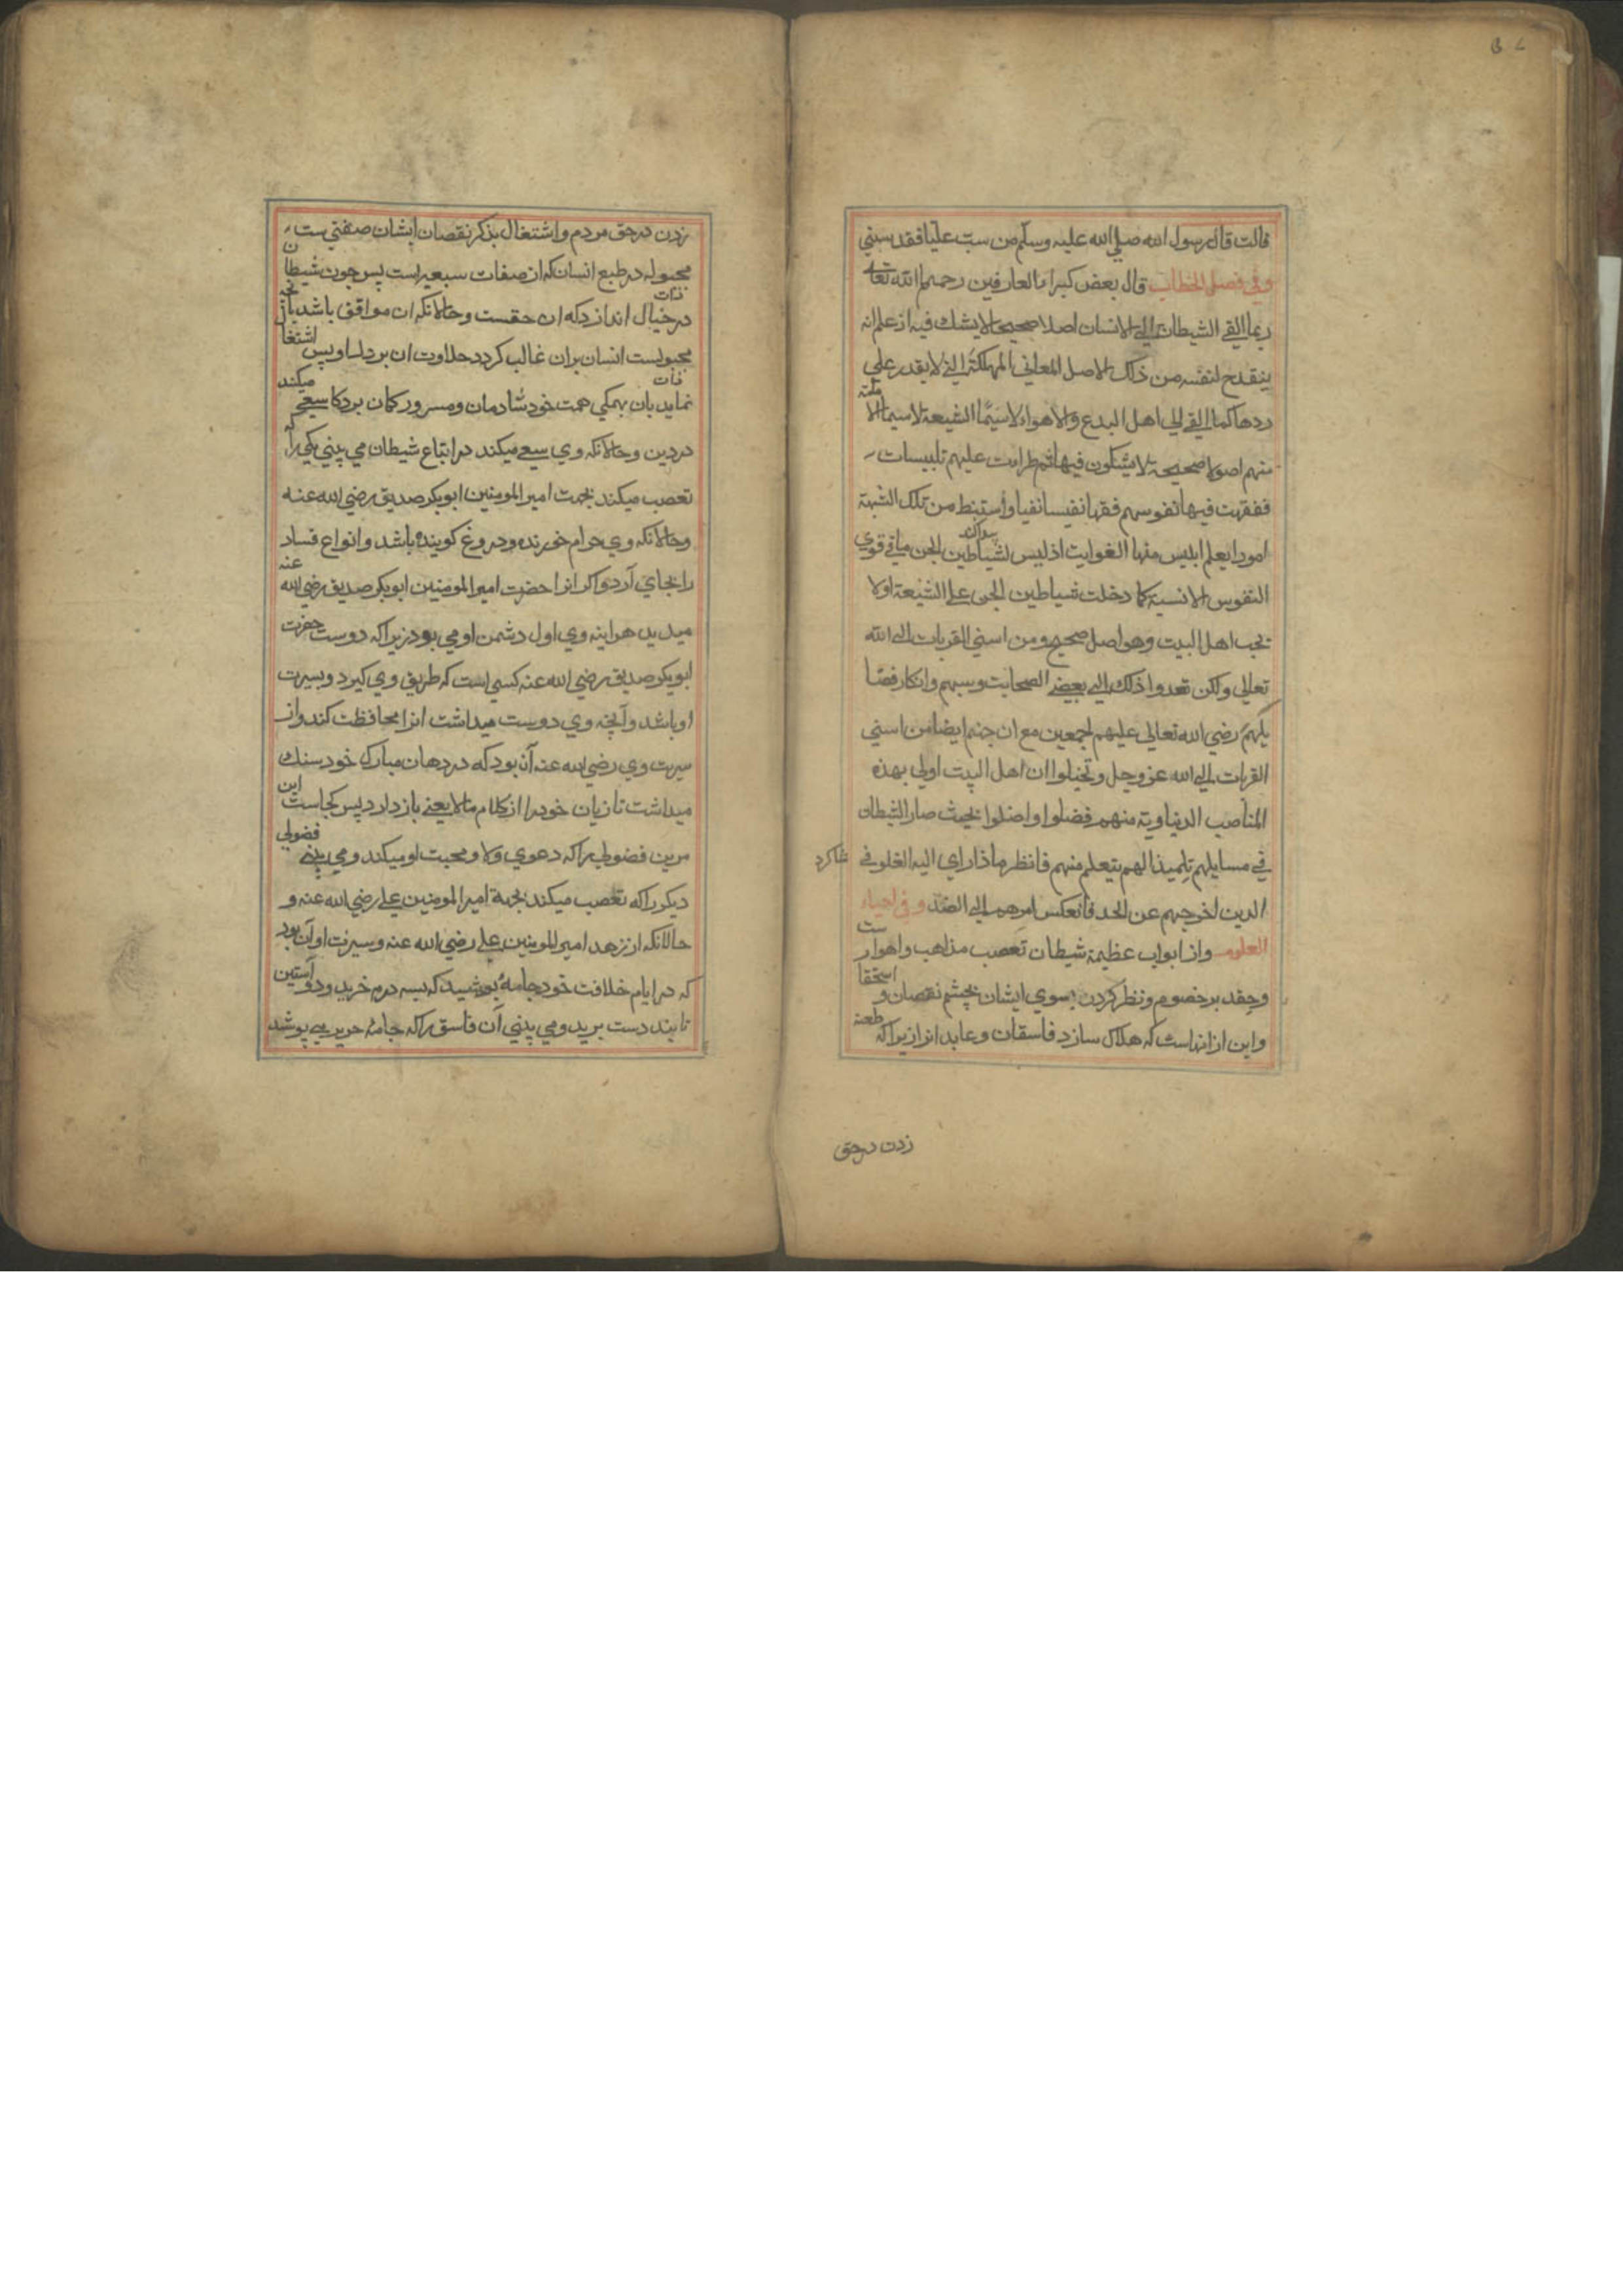 قالت قال رسول الله صلي الله عليه وسلم من سب عليا فقد سبني
وفي فصل الخطاب قال بعض كبراء العارفين رحمهم الله تعالى
ربما القي الشيطان الي الانسان اصلا صحيحا لا يشك فيه از علم انه
ينقدح لنفسه من ذاك الاصل المعاني المهلكة التي لا يقدر علي
ردها كما القي الي اهل البدع والاهواء لاسيما الشيعة لاسيما
منهم اصولا صحيحة لا يشكون فيها ثم طرات عليهم تلبيسات
ففقهت فيها نفوسهم فقها نفيسا نفيا واستنبط من تلك الشبهة
امورا يعلم ابليس منها الغوايت اذ ليس لشياطين الجن ما في قوي
النفوس الانسية كما دخلت شياطين الجن علي الشيعة اولا
بحب اهل البيت وهو اصل صحيح ومن اسني القربات الي الله
تعالي ولكن تعدوا ذلك الي بعض الصحابت وسبهم وانكار فضا
يلهم رضي الله تعالي عليهم اجمعين مع ان حبهم ايضا من اسني
القربات الي الله عز وجل وتخيلوا ان اهل البيت اولي بهذه
المناصب الدنياوية منهم فضلوا واضلوا بحيث صار الشيطان
في مسايلهم تلميذا لهم يتعلم منهم فانظر ماذا راي اليه الغلو في
شاكرد
الدين اخرجهم عن الحد فانعكس امرهم الي الضد وفي احياء
العلوم واز ابواب عظيمة شيطان تعصب مذاهب واهوا ست
وحقد بر خصوم ونظر كردن بسوي ايشان بچشم نقصان و استحقا
واين از انهاست كه هلاك سازد فاسقان وعابدانرا زيرا كه طعنه
زدن در حق
زدن در حق مردم واشتغال بذكر نقصان ايشان صفتي ست
مجبوله در طبع انسان كه از صفات سبعيه است پس چون شيطان
در خيال اندازد كه ان حقست وحالانكه ان موافق باشد بانچه
مجبولست انسان بران غالب كردد حلاوت ان بر دل او پس اشتغا
نمايد بان بهمكي همت خود شادمان ومسرور كمان برد كه سعي ميكند
در دين وحالانكه وي سعي ميكند در اتباع شيطان مي بيني يكي را كه
تعصب ميكند بجهت امير المومنين ابوبكر صديق رضي الله عنه
وحالانكه وي حرام خورنده ودروغ كوينده باشد وانواع فساد
را بجاي آرد واكر انرا حضرت امير المومنين ابوبكر صديق رضي الله عنه
ميديد هر اينه وي اول دشمن او مي بود زيرا كه دوست حضرت
ابوبكر صديق رضي الله عنه كسي است كه طريق وي كيرد وبسيرت
او باشد وآنچه وي دوست ميداشت انرا محافظت كند واز
سيرت وي رضي الله عنه آن بود كه در دهان مبارك خود سنك
ميداشت تا زبان خود را از كلام مالا يعني باز دارد پس كجاست اين
مر اين فضولي را كه دعوي ولا ومحبت او ميكند ومي بيني فضولي
ديكر را كه تعصب ميكند بجهة امير المومنين علي رضي الله عنه و
حالانكه از زهد امير المومنين علي رضي الله عنه وسيرت او آن بود
كه در ايام خلافت خود جامهٔ پوشيد كه بسه درم خريد ودو آستين
تا بند دست بريد ومي بيني آن فاسق را كه جامهٔ حرير مي پوشد